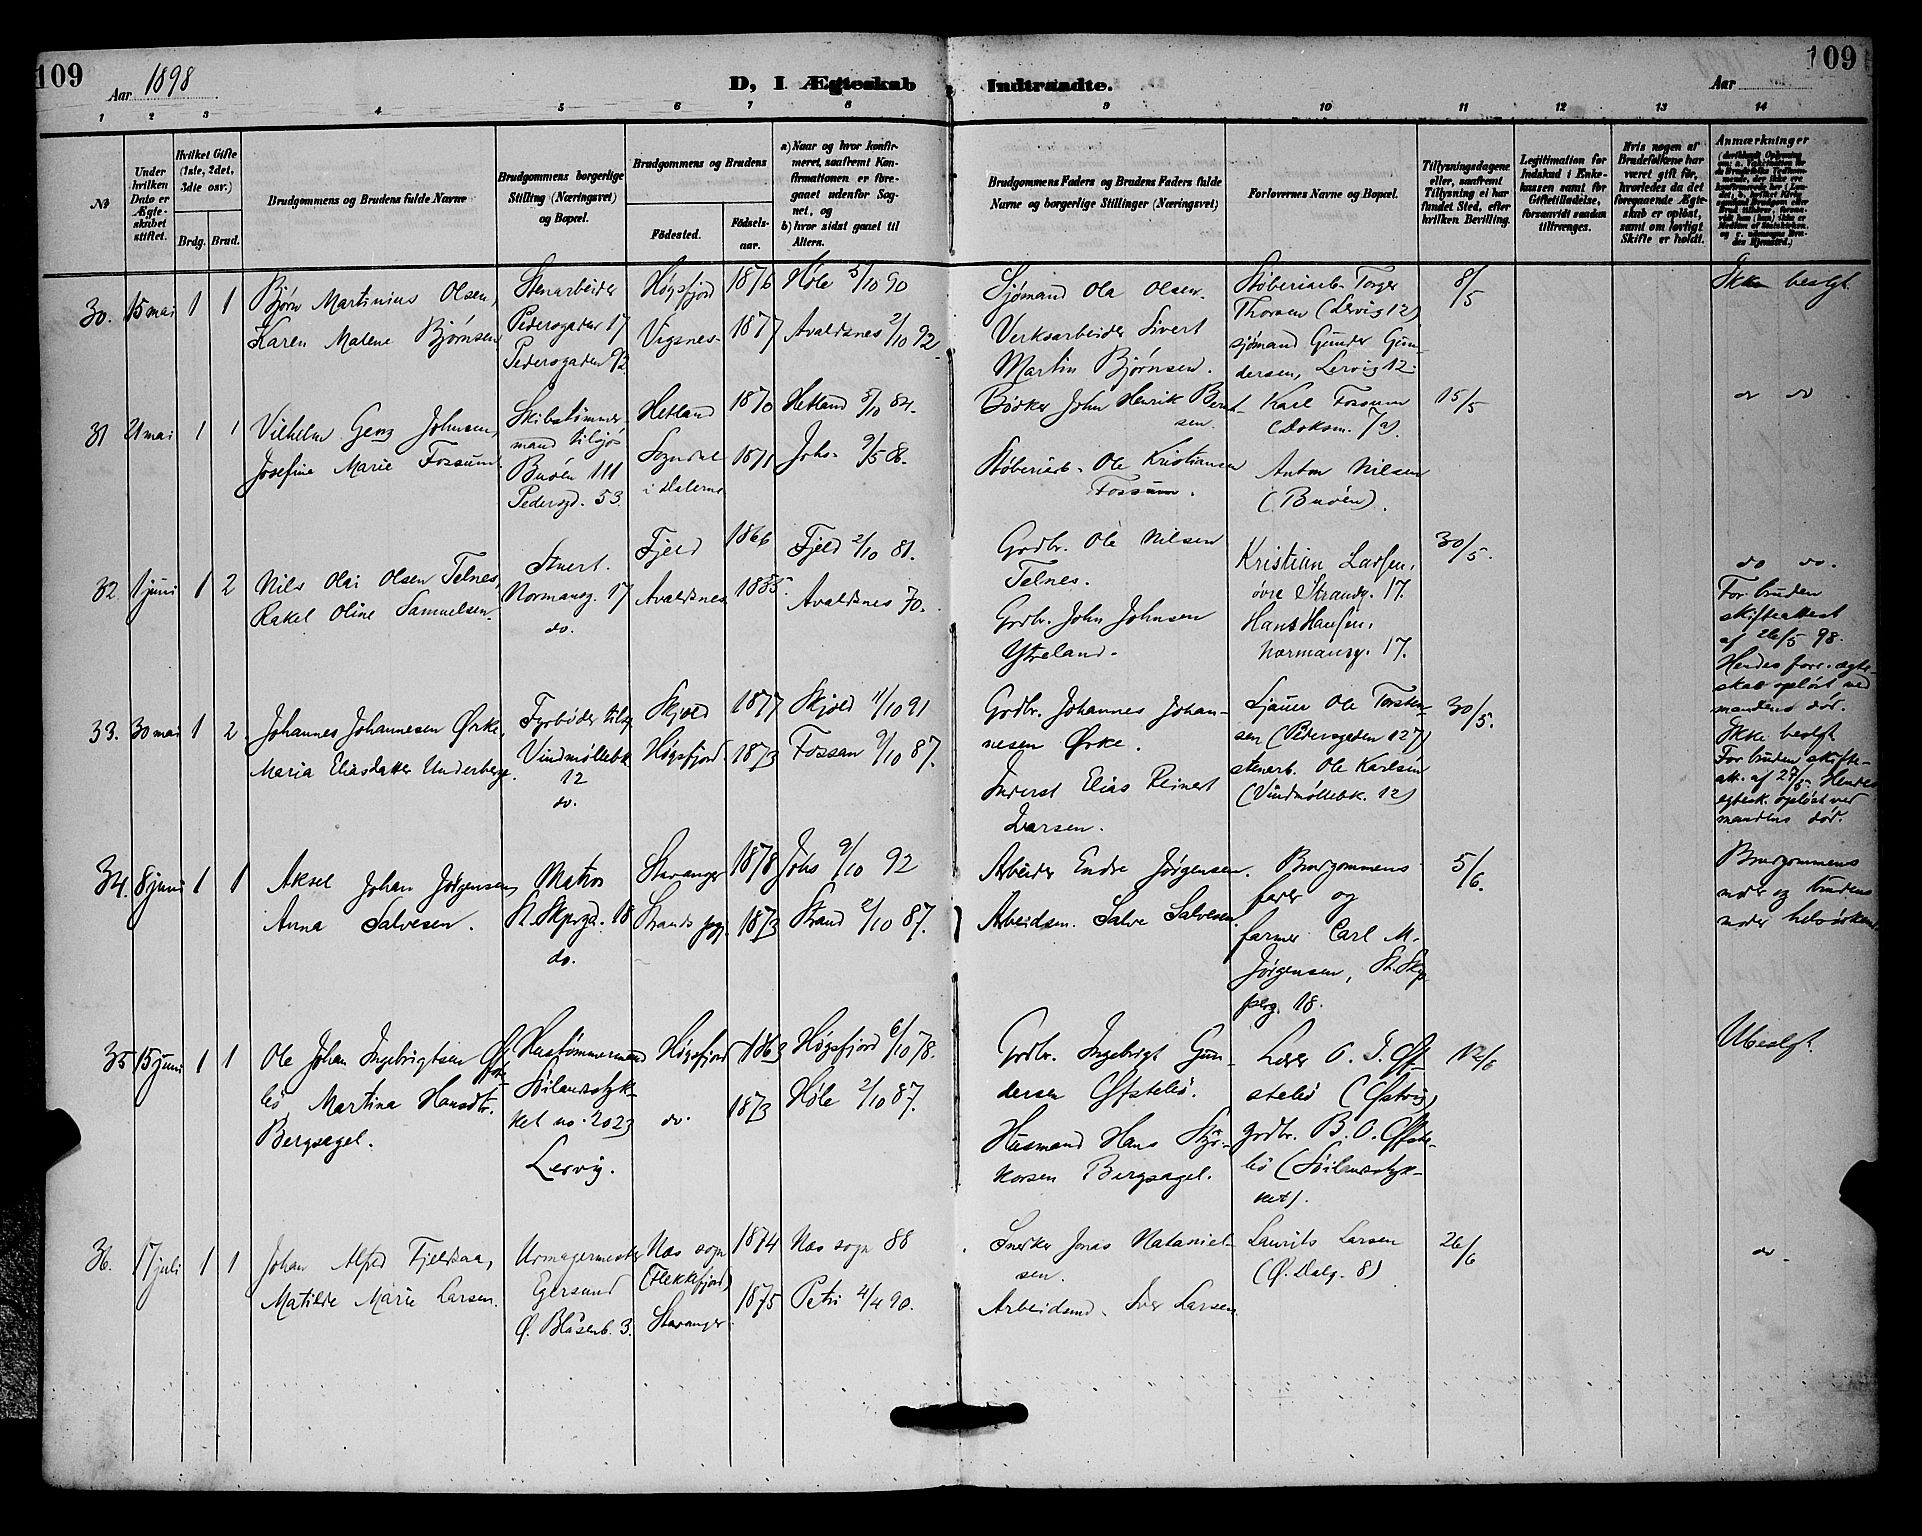 109
Aar 1898
D, I Ægteskab Indtraadte.
Aar
109
1 2 3 4 5 6 7 8 9 10 11 12 13 14
No
Under hvilken Dato er Ægteskabet stiftet.
Hvilket Gifte (1ste, 2det, 3die osv.)
Brdg. Brud.
Brudgommens og Brudens fulde Navne
Brudgommens borgerlige Stilling (Næringsvei) og Bopæl.
Brudgommens og Brudens
Fødested.
Fødselsaar.
a) Naar og hvor konfirmeret, saafremt Konfirmationen er foregaaet udenfor Sognet, og
b) hvor sidst gaaet til Alters.
Brudgommens Faders og Brudens Faders fulde Navne og borgerlige Stillinger (Næringsvei)
Forlovernes Navne og Bopæl.
Tillysningsdagene eller, saafremt Tillysning ei har fundet Sted, efter hvilken Bevilling.
Legitimation for Indskud i Enkekassen samt for Giftetilladelse, forsaavidt saadan tiltrænges.
Hvis nogen af Brudefolkene har været gift før, hvorledes da det foregaaende Ægteskab er opløst, samt om lovligt Skifte er holdt.
Anmærkninger
30. 15 mai 1 1
Bjørn Martinius Olsen,
Karen Malene Bjørnsen
Stenarbeider
Pedersgaden 17
Pedersgaden 92
Høgsfjord 1876 Høle 5/10 90
Vigsnes 1877 Avaldsnes 2/10 92.
Sjømand Ola Olsen.
Verksarbeider Sivert
Martin Bjørnsen.
Støberiarb. Torger
Thorsen (Lervig 12)
sjømand Gunder Gun-
dersen, Lervig 12.
8/5
Ikke beslgt.
31 21 mai 1 1
Vilhelm Genz Johnsen,
Josefine Marie Fossum.
Skibstømmer
mand tilsjøs
Buøen 111
Pedersgd. 53.
Hetland 1870 Hetland 5/10 84.
Sogndal
i Dalerne 1871 Johs. 9/5 86.
Bødker John Henrik Bernt-
sen.
Støberiarb. Ole Kristiansen
Fossum.
Karl Fossum
(Doksm. 7a)
Anton Nilsen
(Buøen).
15/5
do do.
32. 1 juni 1 2
Nils Olai Olsen Telnes,
Rakel Oline Samuelsen.
Stuert.
Normansg. 17
do.
Fjeld 1866 Fjeld 2/10 81.
Avaldsnes 1855. Avaldsnes 70.
Grdbr. Ole Nilsen
Telnes.
Grdbr. John Johnsen
Ytreland.
Kristian Larsen,
øvre Strandg. 17.
Hans Hansen,
Normansg. 17.
30/5.
do do.
For bruden
skifteattest
af 26/5 98.
Hendes forr. ægte-
skab opløst ved
mandens død.
33. 30 mai 1 2
Johannes Johannesen Ørke,
Maria Eliasdatter Underberge.
Fyrbøder tilsj.
Vindmøllebk
12
do.
Skjold 1877 Skjold 11/10 91
Høgsfjord 1873 Fossan 9/10 87.
Grdbr. Johannes Johan-
nesen Ørke.
Inderst Elias Reinert
Larsen.
Sjauer Ole Torsten-
sen (Pedersgaden 127)
stenarb. Ole Karlsen
(Vindmøllebk. 12)
30/5.
Ikke beslgt
For bruden skifte-
att. af 27/5. Hendes
egtesk. opløst ved
mandens død.
34. 8 juni 1 1
Aksel Johan Jørgensen,
Anna Salvesen.
Matros
St. Skperg. 18
do.
Stavanger 1878 Johs 9/10 92
Strands pgj 1873 Strand 2/10 87.
Arbeider Endre Jørgensen.
Arbeidsm. Salve Salvesen
Brudgommens
fader og
farmer Carl M.
Jørgensen, St. Skip
perg. 18.
5/6.
Brudgommens
moder og brudens
moder helsøskend.
35 15 juni 1 1
Ole Johan Ingebrigtsen Offste-
bø, Martina Hansdtr.
Bergsagel.
Hustømmermand
Søilnesstyk-
ket no. 2023
Lervig.
Høgsfjord 1863 Høgsfjord 6/10 78.
do. 1873 Høle 2/10 87.
Grdbr. Ingebrigt Gun-
dersen Offstebø.
Husmand Hans Styr-
korsen Bergsagel.
Lærer O. I. Off-
stebø
grdbr. B. O. Offste-
bø (Søilnesstyk-
ket).
12/6
Ubeslgt.
36. 17 juli 1 1
Johan Alfred Fjeldsaa,
Matilde Marie Larsen.
Urmagermester
Egersund
Ø. Blåsenb. 3.
Næs sogn
(Flekkefjord) 1874 Næs sogn 88
Stavanger 1875 Petri 4/4 90.
Snekker Jonas Nataniel-
sen.
Arbeidsmd. Iver Larsen.
Laurits Larsen
(Ø. Dalg. 8)
26/6
do.